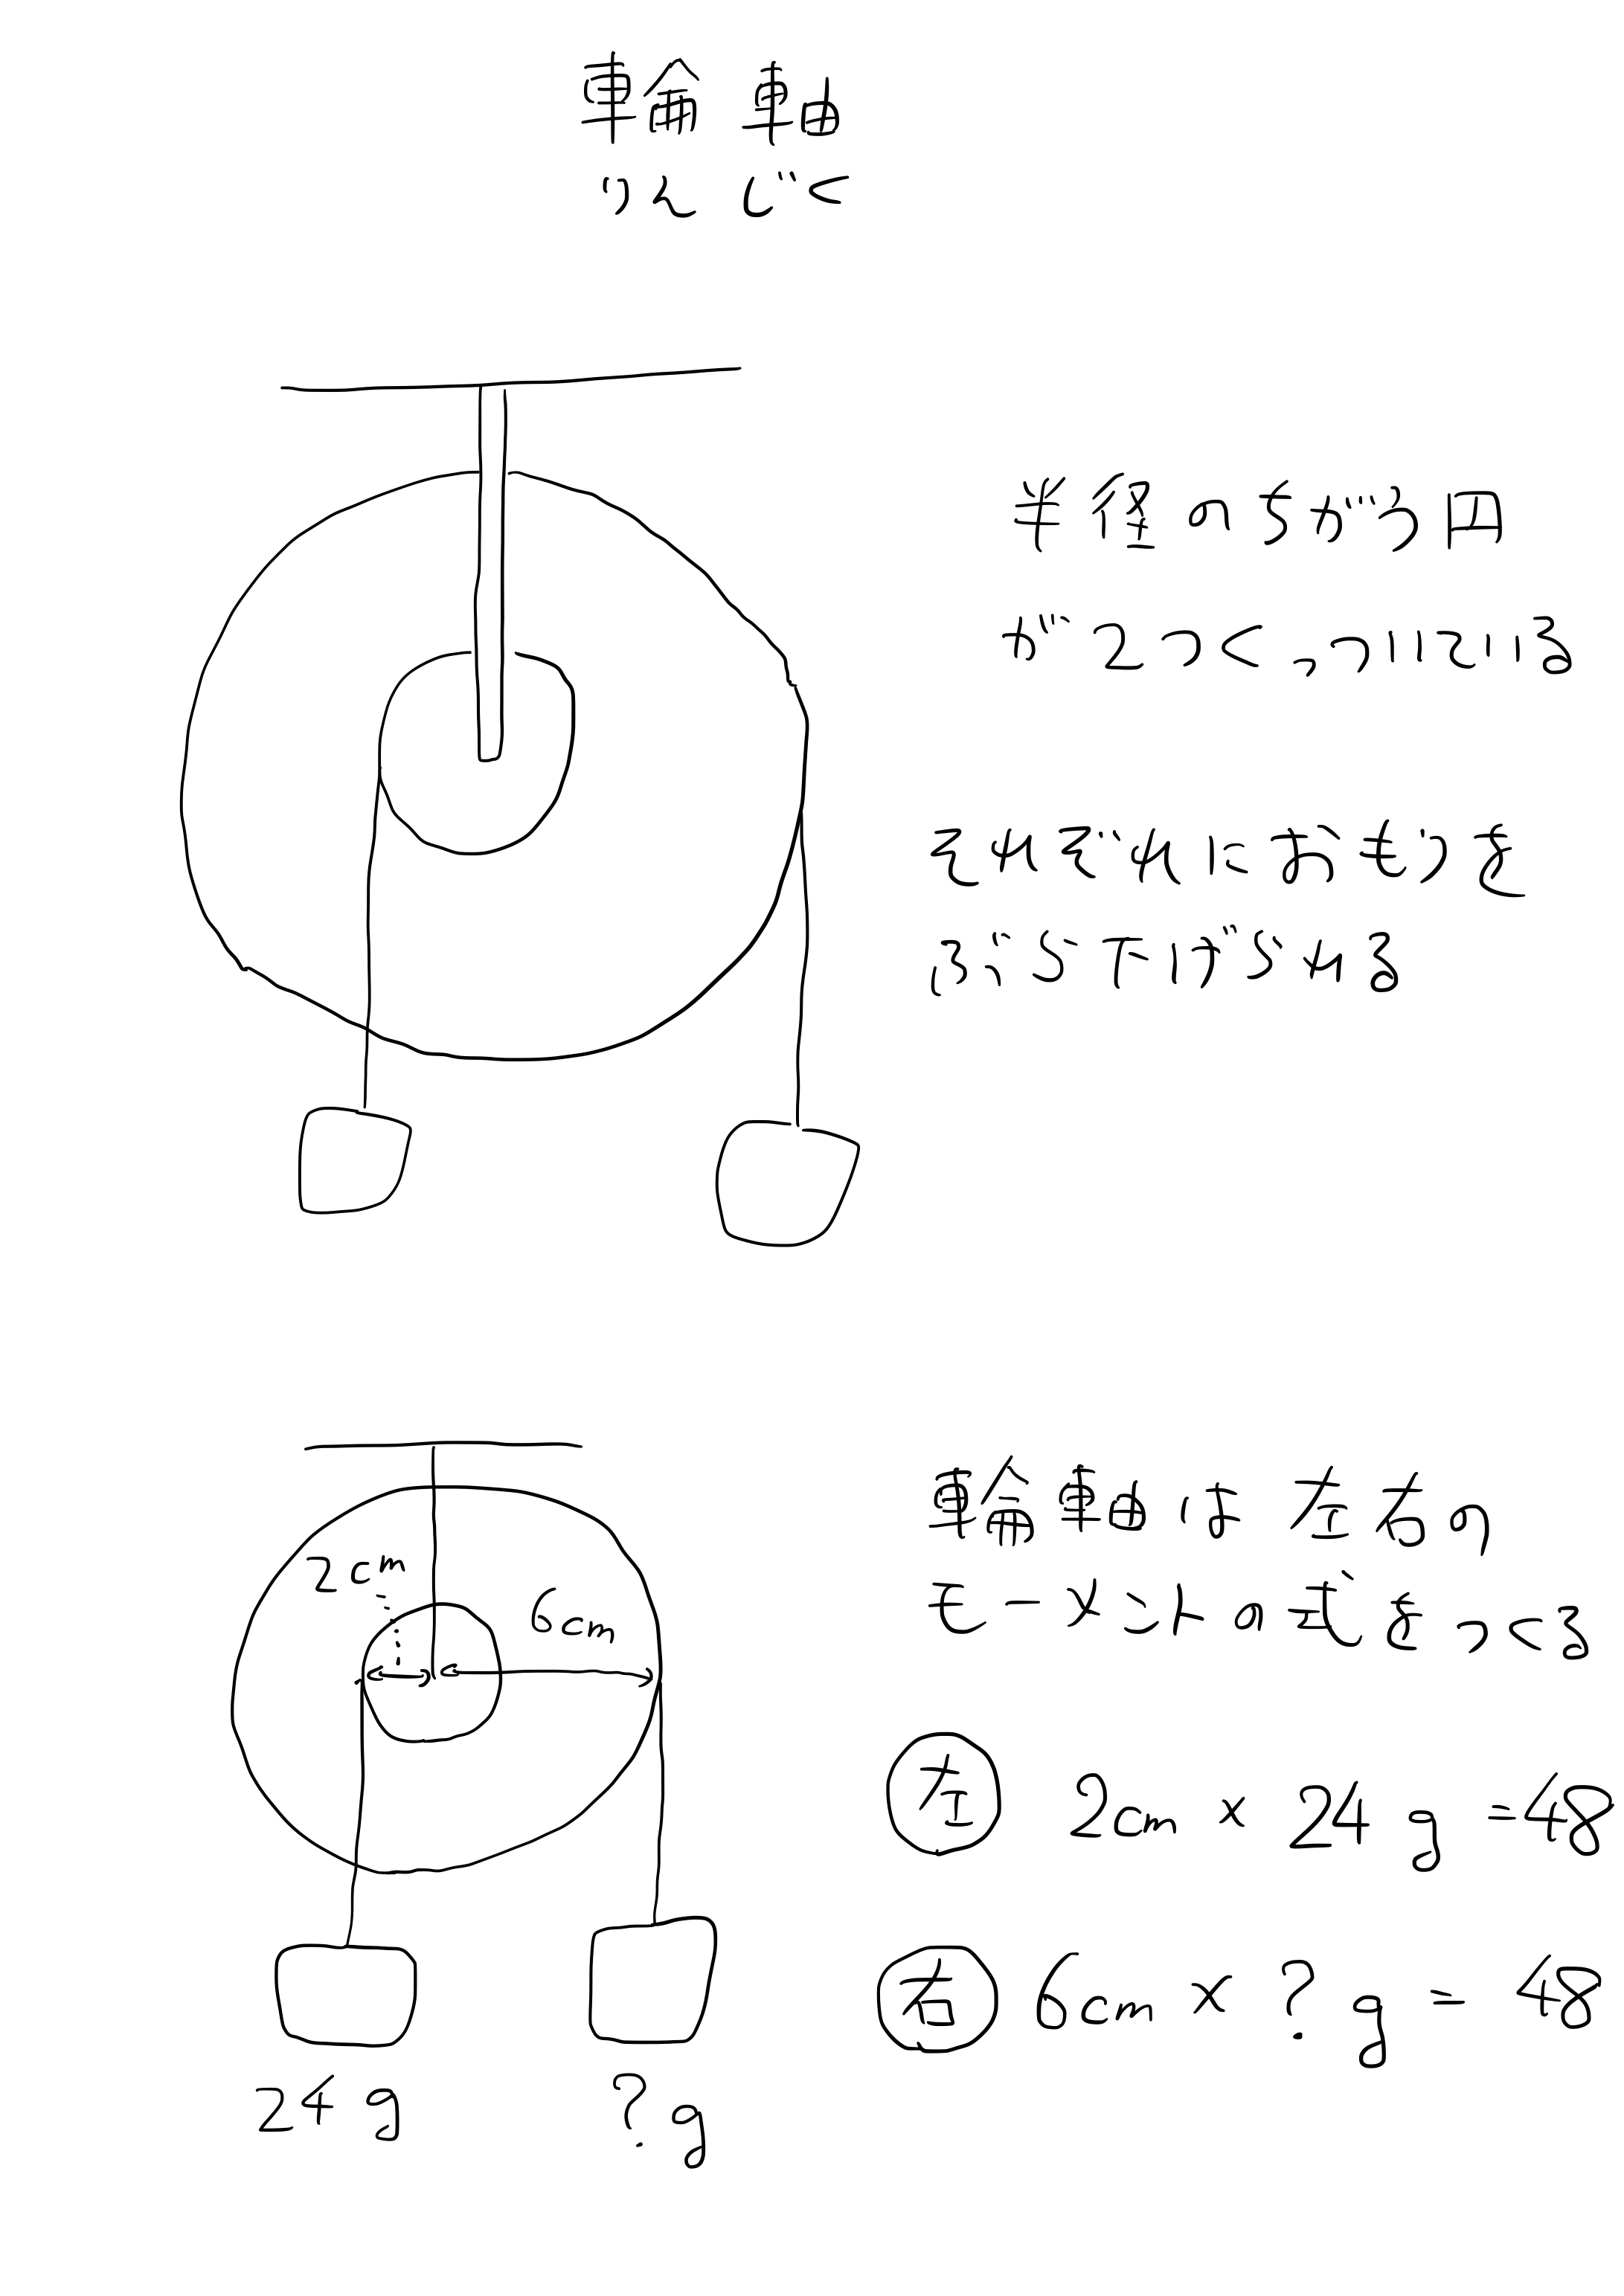 輪軸
りんじく
半径のちがう円
が2つくっついている
それぞれにおもりを
ぶら下げられる
2cm
6cm
24g
?g
輪軸は左右の
モーメントの式をつくる
左 2cm × 24g = 48
右 6cm × ?g = 48